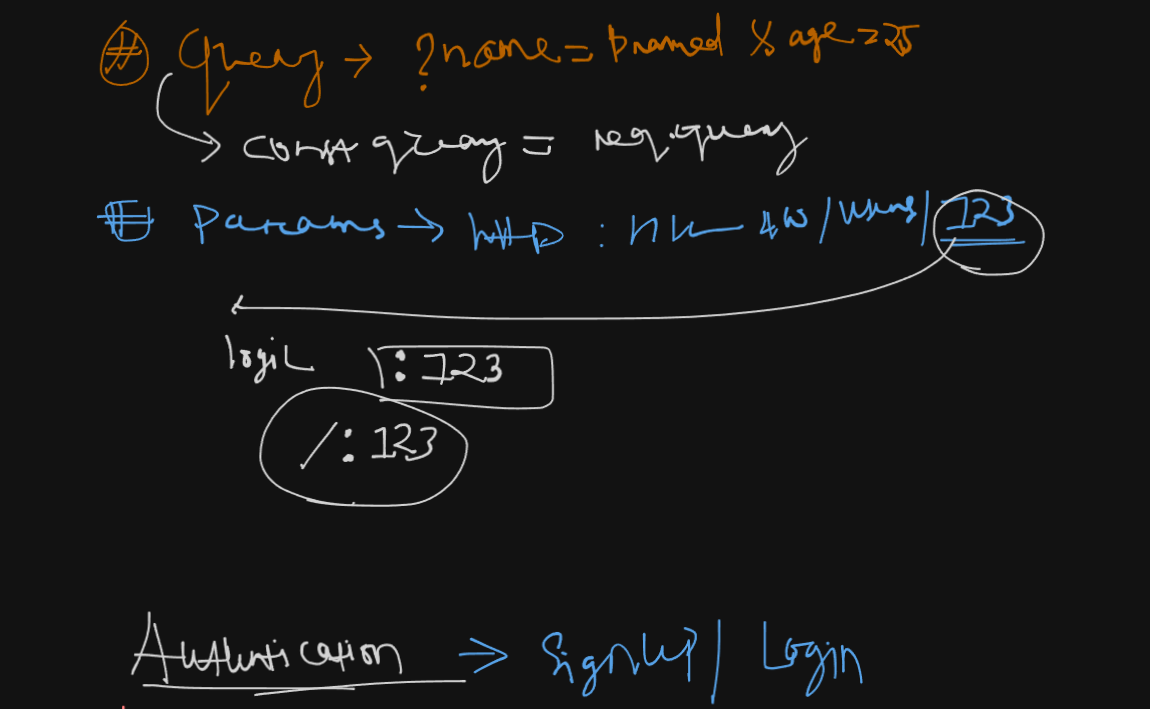 # Query → ?name=pramod & age=25
→ const query = req.query
# Params → http : // 4w/users/123
logic :123
/:123
Authentication ⇒ SignUP/ Login